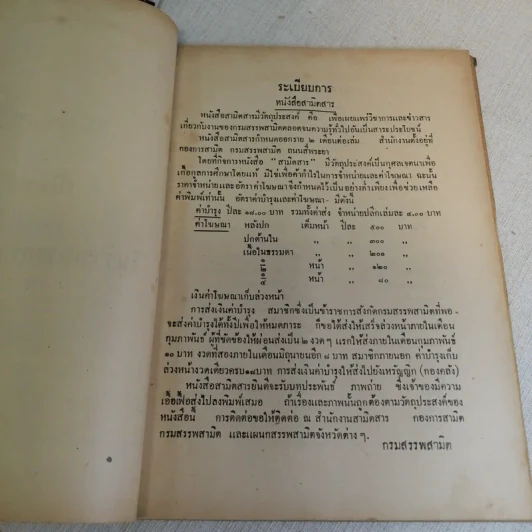 ระเบียบการ
หนังสือสามิตสาร
หนังสือสามิตสารมีวัตถุประสงค์ คือ เพื่อเผยแพร่วิชาการและข่าวสาร
เกี่ยวกับงานของกรมสรรพสามิตตลอดจนความรู้ทั่วไปอันเป็นสาระประโยชน์
หนังสือสามิตสารกำหนดออกราย ๒ เดือนต่อเล่ม สำนักงานตั้งอยู่ที่
กองการสามิต กรมสรรพสามิต ถนนสี่พระยา
โดยที่กิจการหนังสือ "สามิตสาร" มีวัตถุประสงค์เป็นกุศลเจตนาเพื่อ
เกื้อกูลการศึกษาโดยแท้ มิใช่เพื่อค้ากำไรในการจำหน่ายและค่าโฆษณา ฉะนั้น
ราคาจำหน่ายและอัตราค่าโฆษณาจึงกำหนดไว้เป็นอย่างต่ำเพียงเพื่อช่วยเหลือ
ค่าพิมพ์เท่านั้น อัตราค่าบำรุงและค่าโฆษณา - มีดังนี้
ค่าบำรุง ปีละ ๑๘.๐๐ บาท รวมทั้งค่าส่ง จำหน่ายปลีกเล่มละ ๔.๐๐ บาท
ค่าโฆษณา หลังปก เต็มหน้า ปีละ ๕๐๐ บาท
ปกด้านใน ,, ,, ๓๐๐ ,,
เนื้อในธรรมดา ,, ,, ๒๐๐ ,,
๑/๒ หน้า ,, ๑๒๐ ,,
๑/๔ หน้า ,, ๘๐ ,,
เงินค่าโฆษณาเก็บล่วงหน้า
การส่งเงินค่าบำรุง สมาชิกซึ่งเป็นข้าราชการสังกัดกรมสรรพสามิตที่พอ-
จะส่งค่าบำรุงได้ทั้งปีเพื่อให้หมดภาระ ก็ขอได้ส่งให้เสร็จล่วงหน้าภายในเดือน
กุมภาพันธ์ ผู้ที่ขัดข้องให้ผ่อนส่งเป็น ๒ งวด ๆ แรกให้ส่งภายในเดือนกุมภาพันธ์
๑๐ บาท งวดที่สองภายในเดือนมิถุนายนอีก ๘ บาท สมาชิกภายนอก ค่าบำรุงเก็บ
ล่วงหน้างวดเดียวครบ๑๘บาท การส่งเงินค่าบำรุงให้ส่งไปยังเหรัญญิก (กองคลัง)
หนังสือสามิตสารยินดีจะรับบทประพันธ์ ภาพถ่าย ซึ่งเจ้าของมีความ
เอื้อเฟื้อส่งไปลงพิมพ์เสมอ ถ้าเรื่องและภาพนั้นถูกต้องตามวัตถุประสงค์ของ
หนังสือนี้ การติดต่อขอให้ติดต่อ ณ สำนักงานสามิตสาร กองการสามิต
กรมสรรพสามิต และแผนกสรรพสามิตจังหวัดต่าง ๆ.
กรมสรรพสามิต